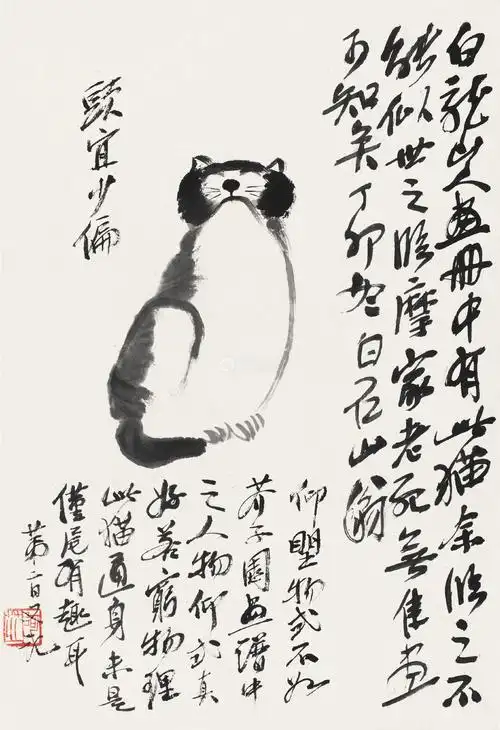 白龍山人畫冊中有此猫余臨之不
能似世之臨摩家老死無佳畫
可知矣丁卯冬白石山翁
頭宜少偏
仰望物式不如
芥子園畫譜中
之人物仰式真
好若窮物理
此猫通身未是
僅尾有趣耳
第二日又